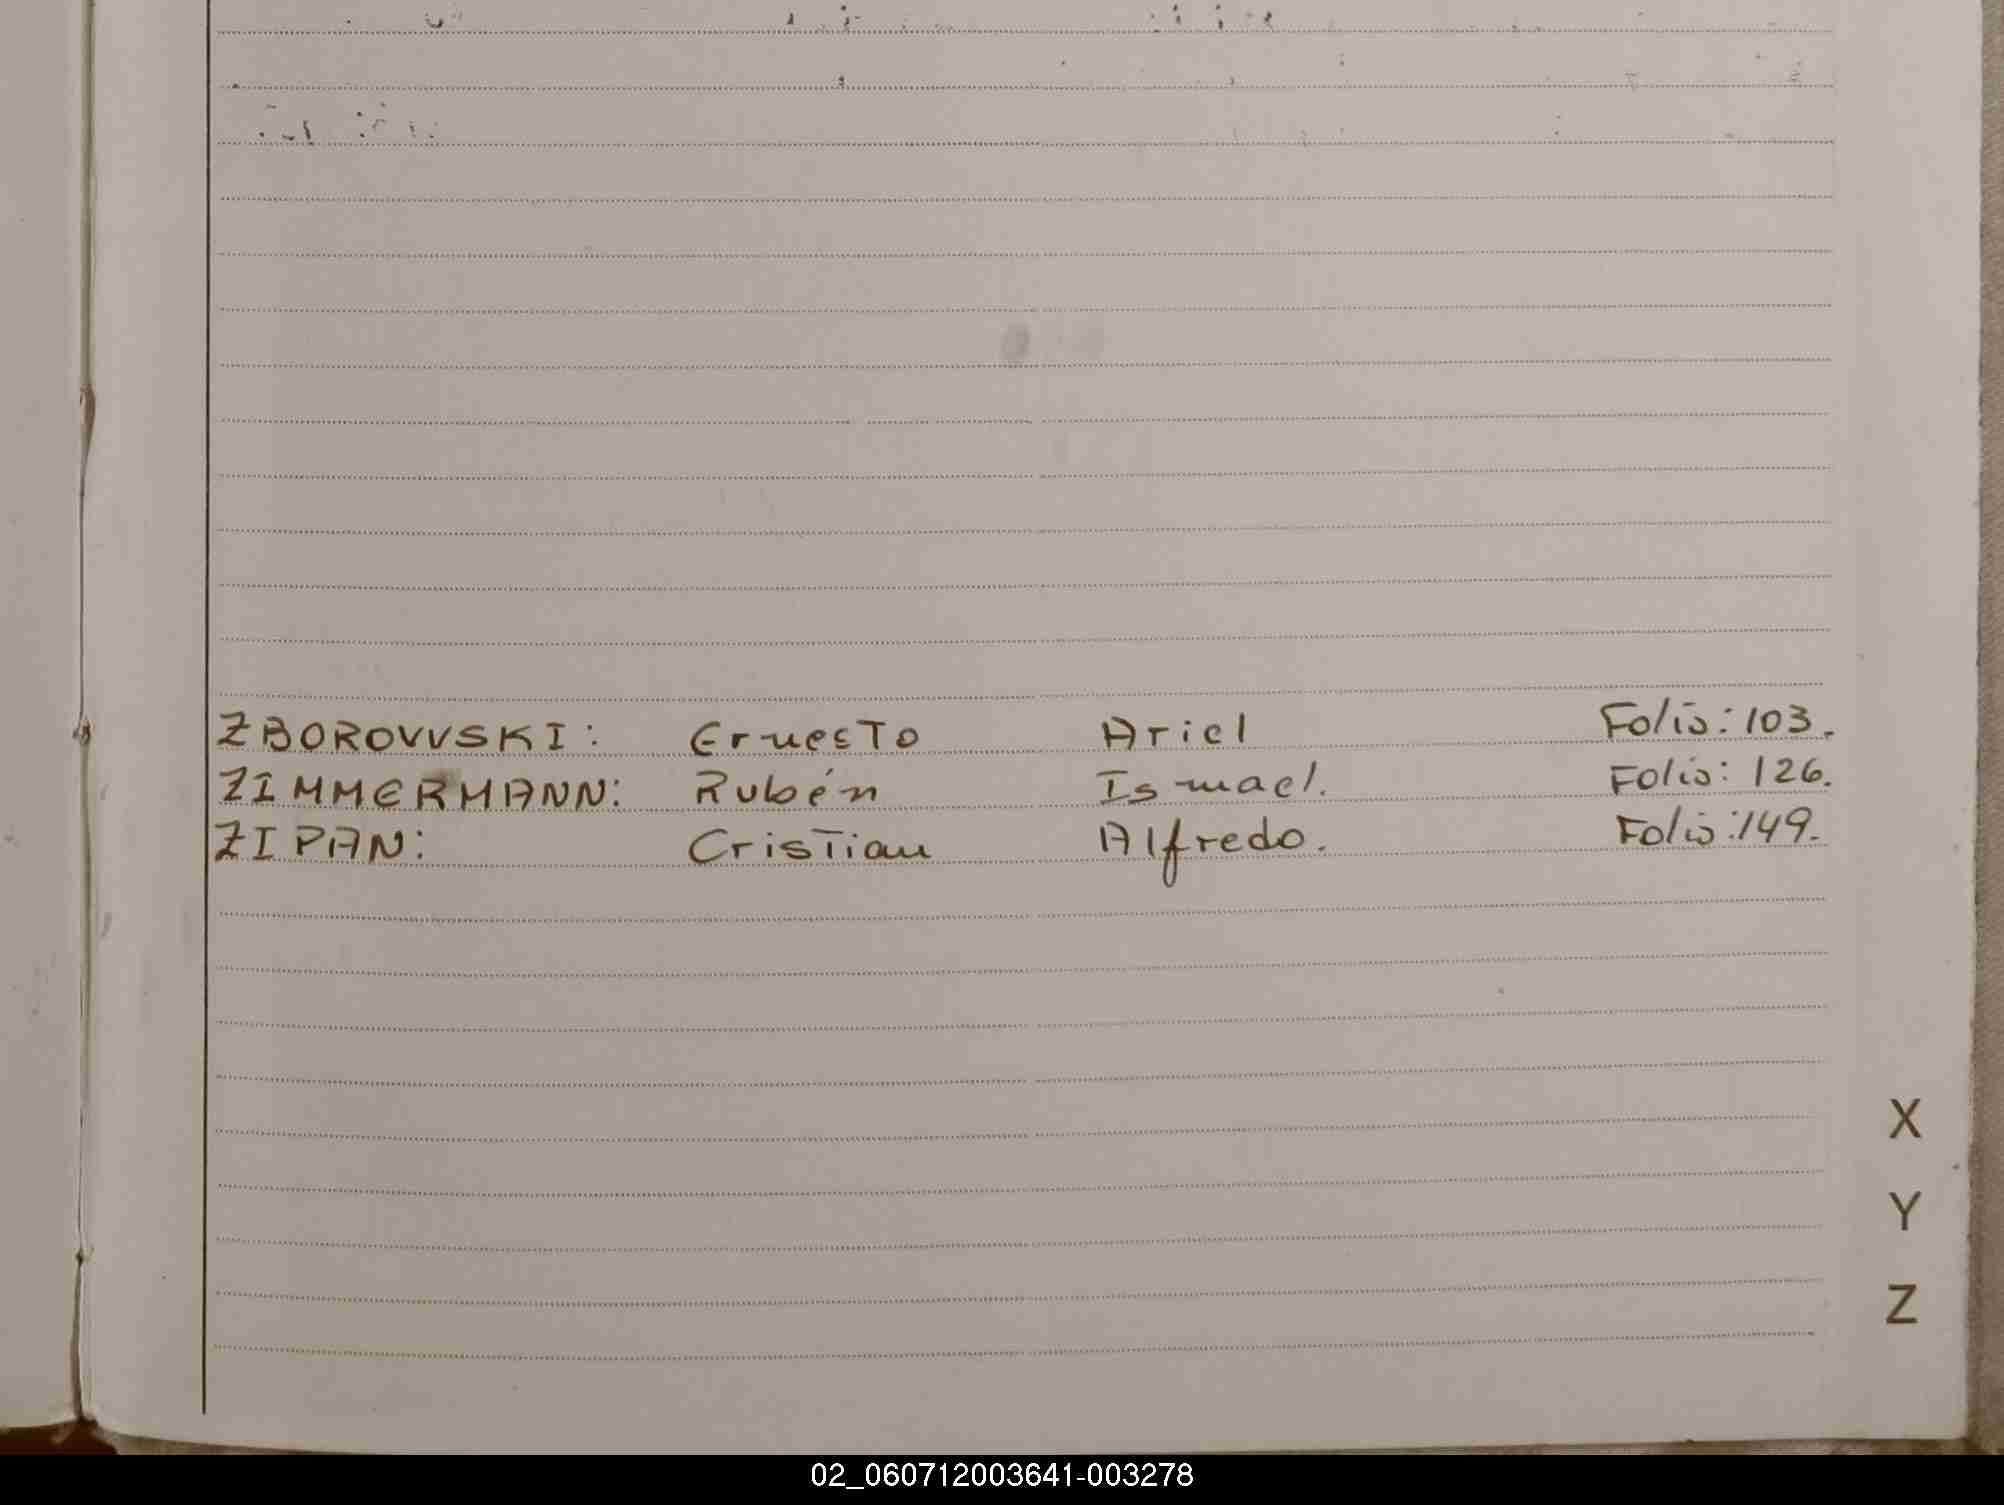 ZBOROVVSKI: Ernesto Ariel Folio: 103.
ZIMMERMANN: Rubén Ismael. Folio: 126.
ZIPAN: Cristian Alfredo. Folio: 149.
X
Y
Z
02_060712003641-003278